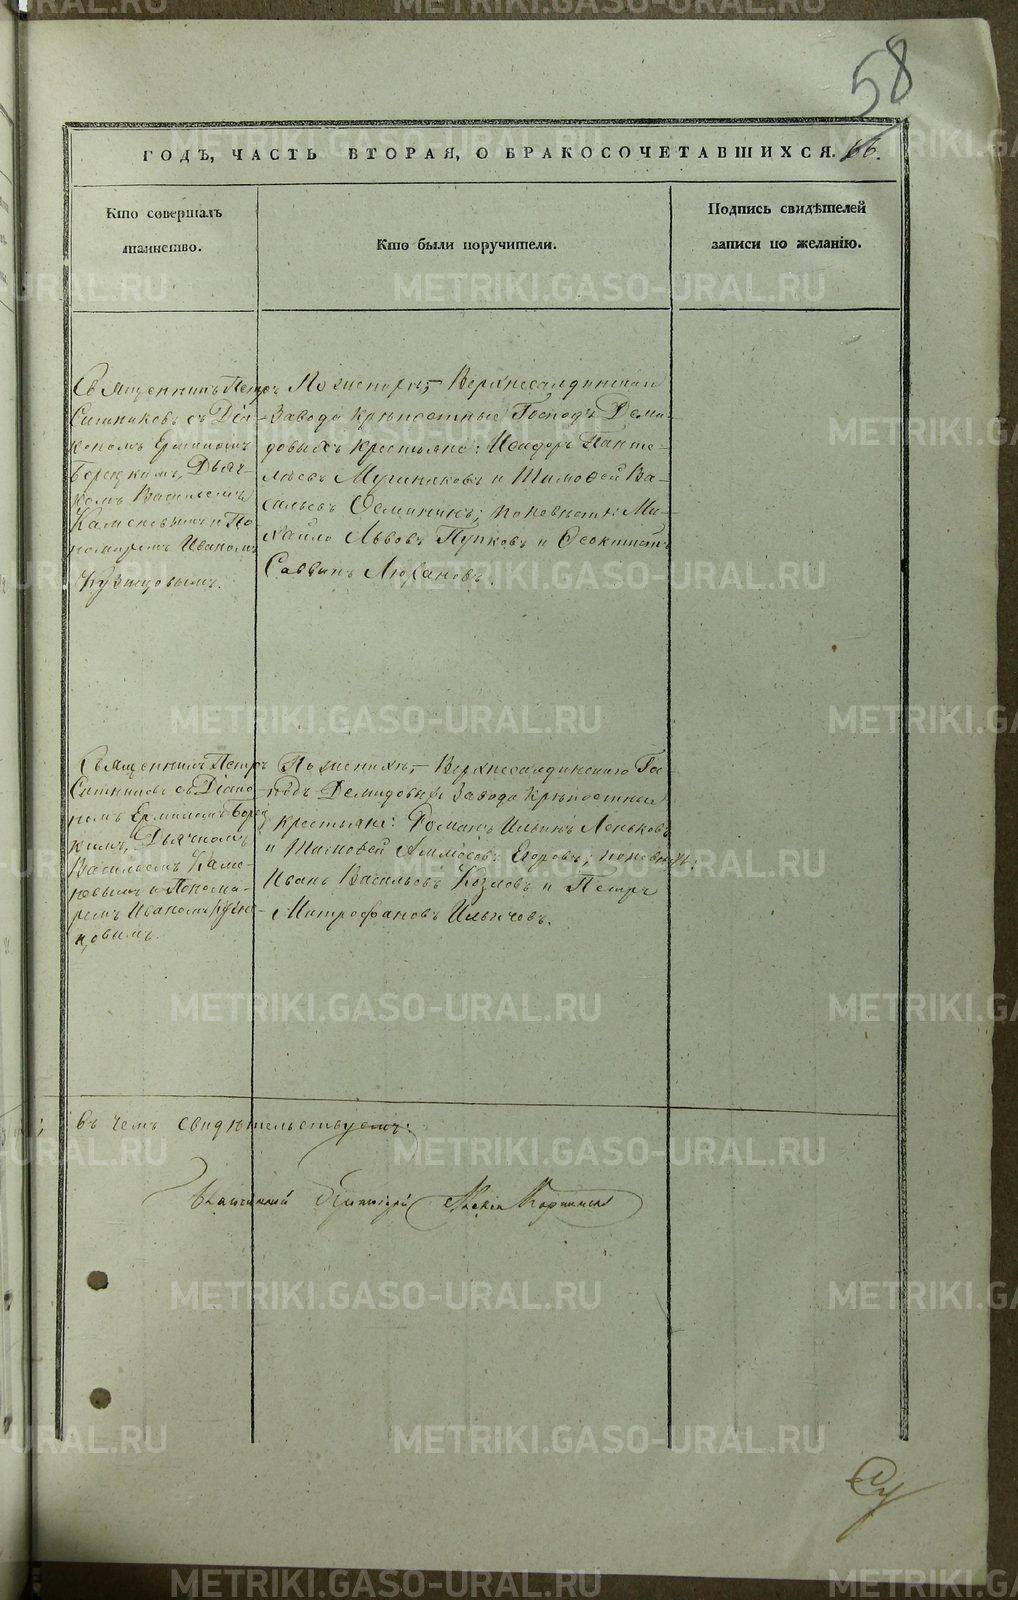 58
ГОДЪ, ЧАСТЬ ВТОРАЯ, О БРАКОСОЧЕТАВШИХСЯ. 66.
Кто совершалъ
таинство.
Кто были поручители.
Подпись свидѣтелей
записи по желанію.
Священникъ Петръ
Ситниковъ съ Діа-
кономъ Ермиломъ
Борецкимъ, Дьяч-
комъ Васильемъ
Каменевымъ и По-
номаремъ Иваномъ
Кузнецовымъ.
По женихѣ, Верхнесалдинскаго
Завода крѣпостные Господъ Деми-
довыхъ крестьяне: Исидоръ Панте-
лѣевъ Мугиняковъ и Тимофей Ва-
сильевъ Осминихъ; по невѣстѣ: Ми-
хайло Львовъ Пупковъ и Ѳеоктистъ
Саввинъ Люхановъ.
Священникъ Петръ
Ситниковъ съ Діако-
номъ Ермиломъ Борец-
кимъ, Дьячкомъ
Васильемъ Каме-
невымъ и Понома-
ремъ Иваномъ Кузне-
цовымъ.
По женихѣ, Верхнесалдинскаго Го-
сподъ Демидовыхъ Завода крѣпостные
крестьяне: Романъ Ильинъ Леньковъ
и Тимофей Амосовъ Егоровъ; по невѣстѣ:
Иванъ Васильевъ Козловъ и Петръ
Митрофановъ Ильичовъ.
въ чемъ свидѣтельствуемъ:
METRIKI.GASO-URAL.RU